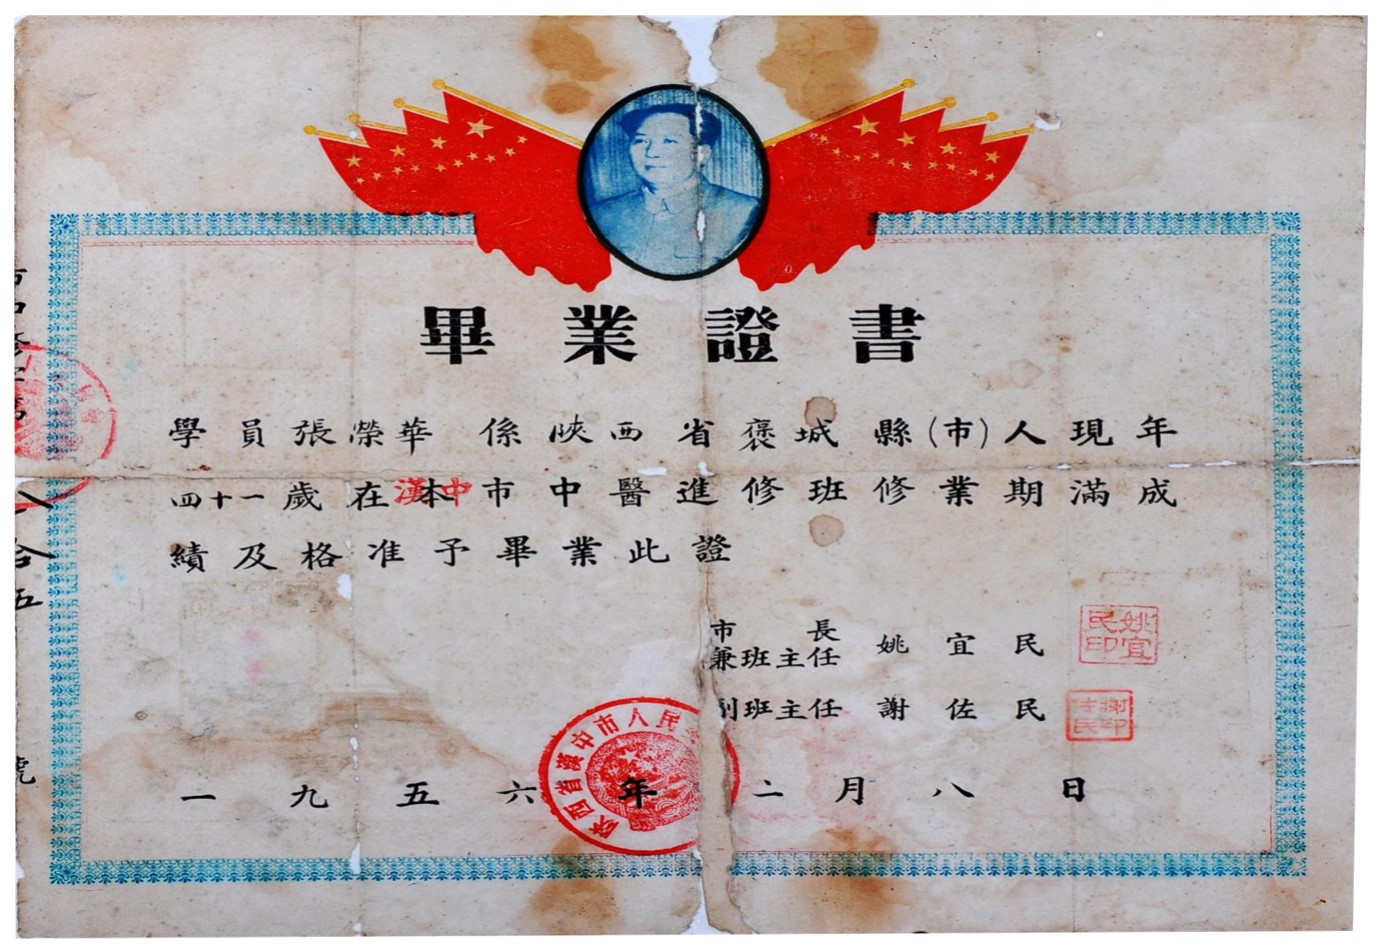 畢業證書
學員張榮華係陝西省褒城縣(市)人現年
四十一歲在漢本中市中醫進修班修業期滿成
績及格准予畢業此證
市長
兼班主任 姚宜民
姚宜民印
副班主任 謝佐民
謝佐民印
陝西省漢中市人民
一九五六年二月八日
八
拾
五
號